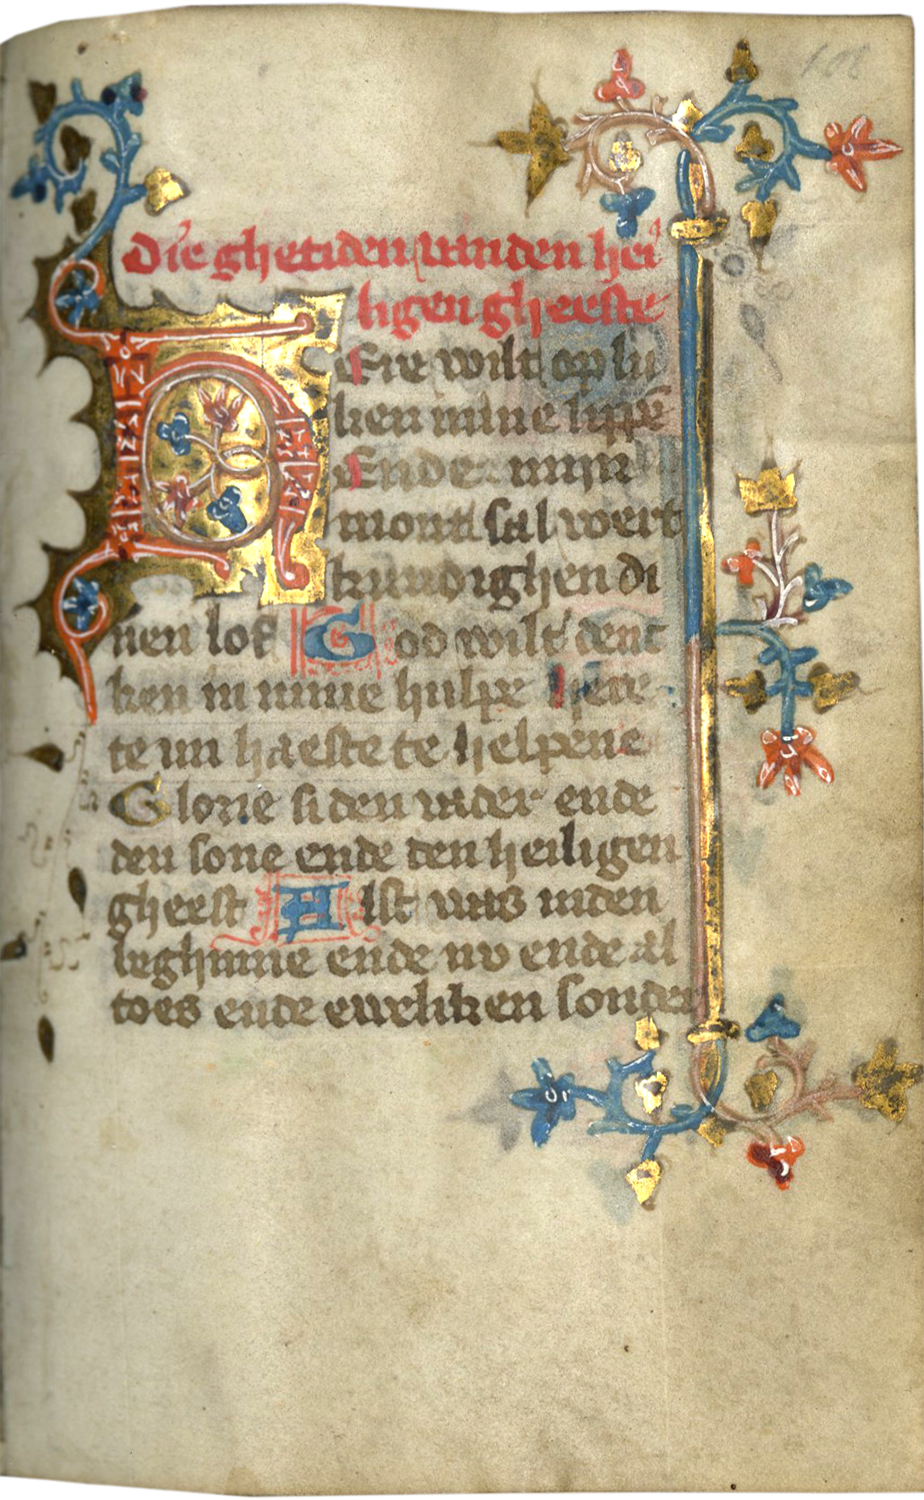 Die ghetiden van den hei
ligen gheeste
Here wilt op lu
ken mine lippē
Ende mijn
mont sal vert
kundighen di
nen lof God wilt denc
ken in mine hulpe here
te mi haeste te helpene
Glorie si den vader ende
den sone ende den heiligen
gheest Alst was inden
beghinne ende nv ende al
toes ende ewelik en sonder